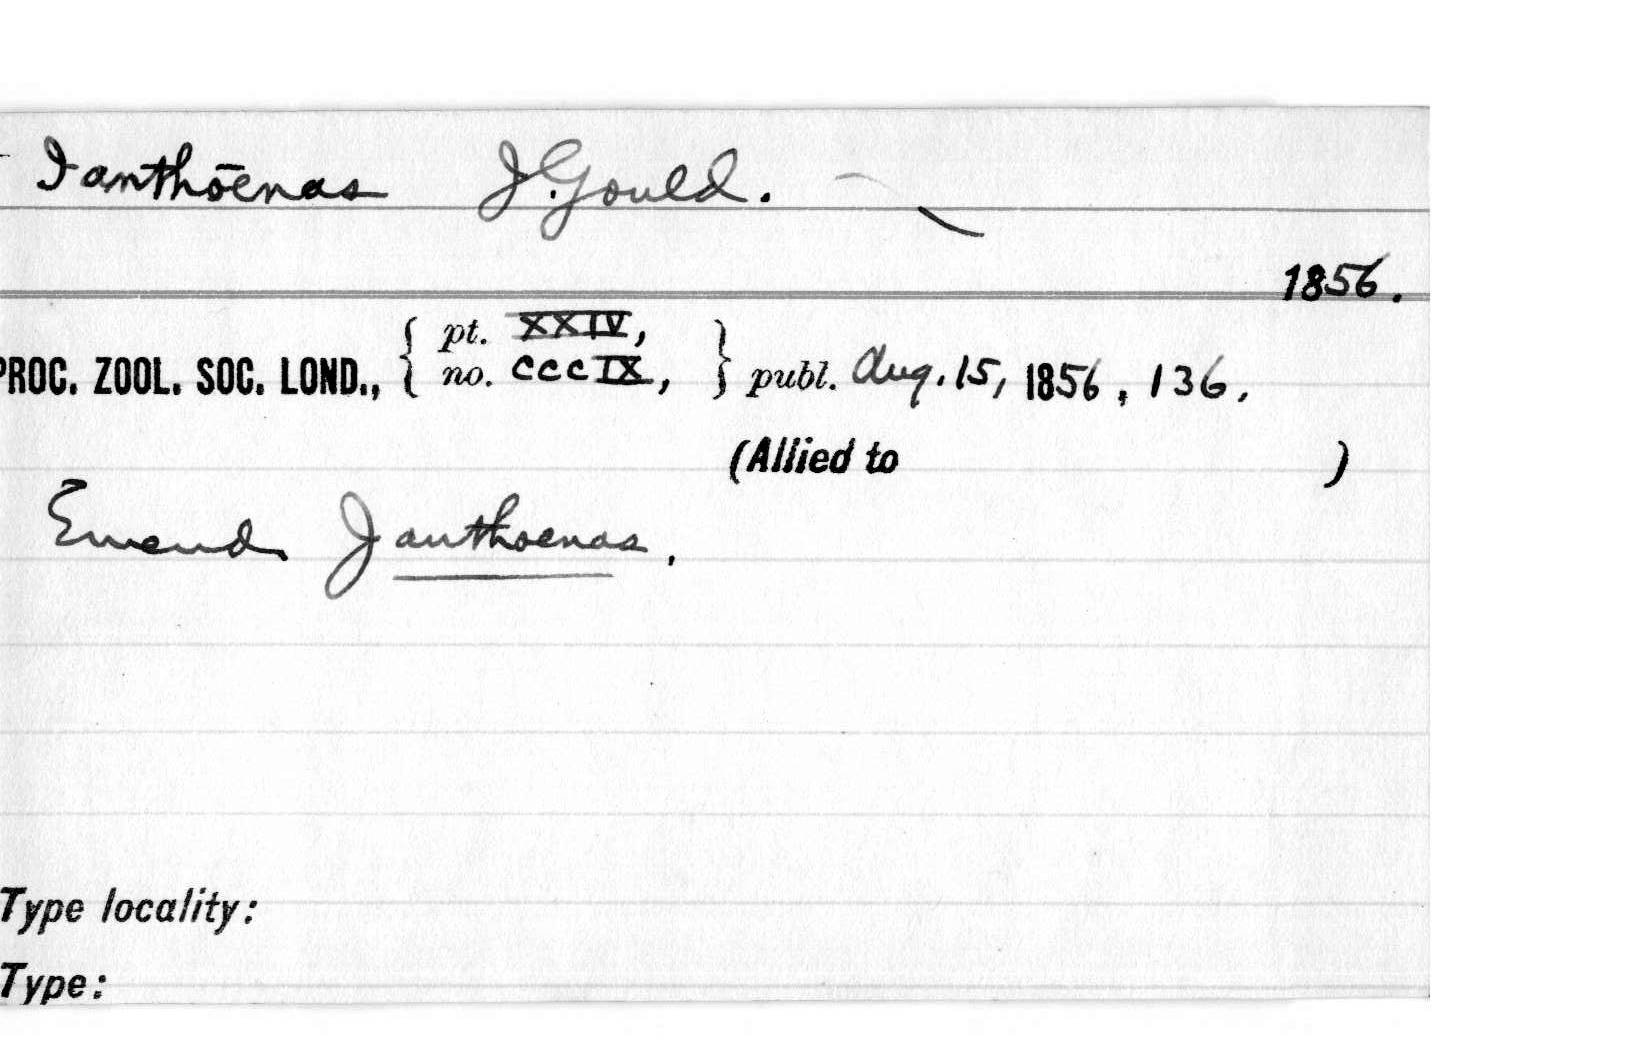 Ianthōenas J. Gould.
1856.
{ pt. XXIV, }
PROC. ZOOL. SOC. LOND., no. CCCIX, publ. Aug. 15, 1856, 136,
(Allied to )
Emend Janthoenas.
Type locality:
Type: